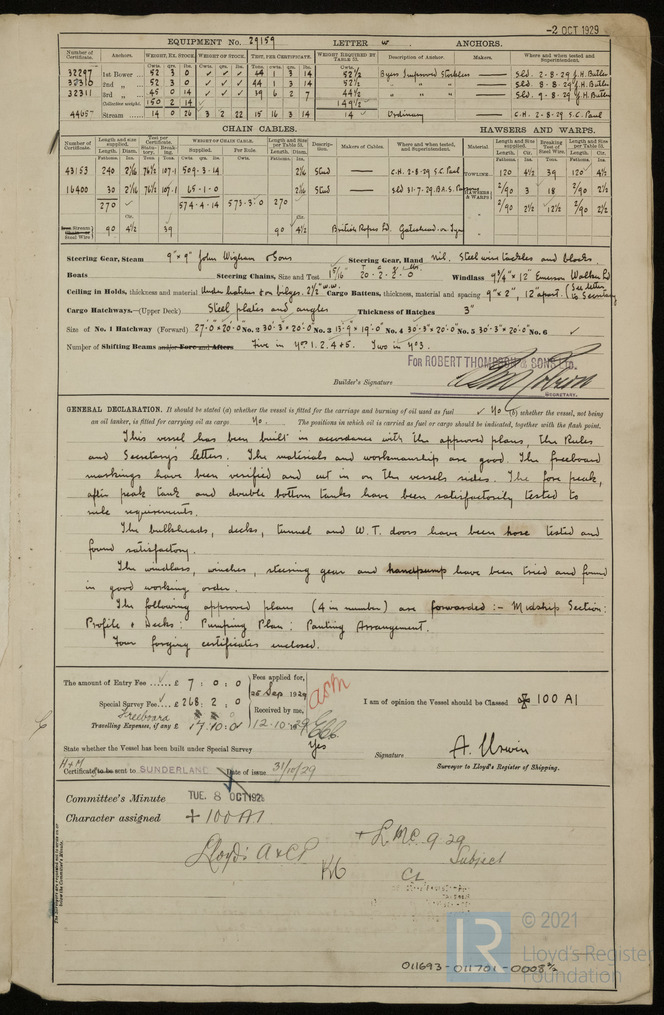 -2 OCT 1929
EQUIPMENT No. 29159 LETTER w ANCHORS.
Number of Certificate. Anchors. WEIGHT, EX. STOCK. WEIGHT OF STOCK. TEST, PER CERTIFICATE. WEIGHT REQUIRED BY TABLE 31. Description of Anchor. Makers. Where and when tested and Superintendent.
Cwts. qrs. lbs. Cwts. qrs. lbs. Tons. cwts. qrs. lbs. Cwts.
32297 1st Bower ... 52 3 0 ✓ ✓ ✓ 44 1 3 14 52½ Byers Improved Stockless — Sld. 2-8-29 J.H. Butler
32310 2nd „ ... 52 3 0 ✓ ✓ ✓ 44 1 3 14 52½ " " " — Sld. 8-8-29 J.H. Butler
32311 3rd „ ... 45 0 14 ✓ ✓ ✓ 39 6 2 7 44½ " " " — Sld. 9-8-29 J.H. Butler
Collective weight. 150 2 14 149½
44657 Stream ... 14 0 26 3 2 22 15 16 3 14 14 Ordinary — C.H. 2-8-29 S.C. Paul
CHAIN CABLES. HAWSERS AND WARPS.
Number of Certificate. Length and size supplied. Test per Certificate. WEIGHT OF CHAIN CABLE. Length and size per Table 31. Description. Makers of Cables. Where and when tested, and Superintendent. Material. Length and Size supplied. Breaking Test of Steel Wire. Length and Size per Table 31.
Fathoms. Diam. Statutory. Breaking. Supplied. Per Rule. Length. Diam. Length. Cir. Length. Cir.
43153 240 2⅛ 76½ 107·1 509·3·14 2⅛ Stud — C.H. 2-8-29 S.C. Paul TOWLINE 120 4½ 39 120 4½
16400 30 2⅛ 76½ 107·1 65·1·0 2⅛ Stud — Sld 31-7-29 HAWSERS & WARPS 2/90 3 18 2/90 2½
270 574·4·14 573·3·0 270 2/90 2½ 12½ 2/90 2½
Iron Stream Steel Wire 90 4½ 39 90 4½ British Ropes Ld Gateshead-on-Tyne
Steering Gear, Steam 9" × 9" John Wigham & Sons Steering Gear, Hand nil. Steel wire tackles and blocks.
Boats Steering Chains, Size and Test 15/16" 20·2·2·0 Windlass 9¾" × 12" Emerson Walker Ld
Ceiling in Holds, thickness and material Under hatches & on bilges. 2½" w.w. Cargo Battens, thickness, material and spacing 9" × 2" 12" apart. (See letter to Secretary
Cargo Hatchways.—(Upper Deck) Steel plates and angles Thickness of Hatches 3"
Size of No. 1 Hatchway (Forward) 27·0 × 20·0 No. 2 30·3 × 20·0 No. 3 13·9 × 19·0 No. 4 30·3 × 20·0 No. 5 30·3 × 20·0 No. 6 ✓
Number of Shifting Beams and/or Fore and Afters Five in Nos 1. 2. 4 & 5. Two in No 3.
FOR ROBERT THOMPSON & SONS LTD.
Builder's Signature
SECRETARY.
GENERAL DECLARATION. It should be stated (a) whether the vessel is fitted for the carriage and burning of oil used as fuel ✓ No (b) whether the vessel, not being
an oil tanker, is fitted for carrying oil as cargo No. The positions in which oil is carried as fuel or cargo should be indicated, together with the flash point.
This vessel has been built in accordance with the approved plans, the Rules
and Secretary's letters. The materials and workmanship are good. The freeboard
markings have been verified and cut in on the vessels sides. The fore peak,
after peak tank and double bottom tanks have been satisfactorily tested to
rule requirements.
The bulkheads, decks, tunnel and W.T. doors have been hose tested and
found satisfactory.
The windlass, winches, steering gear and handpump have been tried and found
in good working order.
The following approved plans (4 in number) are forwarded :- Midship Section:
Profile & Decks: Pumping Plan: Panting Arrangement.
Four forging certificates enclosed.
The amount of Entry Fee ... £ 7 : 0 : 0 Fees applied for,
Special Survey Fee ... £ 268 : 2 : 0 25 Sep 1929
Freeboard Received by me,
Travelling Expenses, if any £ 17.10.0 12.10.1929
I am of opinion the Vessel should be Classed ✠ 100 A1
State whether the Vessel has been built under Special Survey Yes
Signature A. Urwin
Surveyor to Lloyd's Register of Shipping.
H+M
Certificate to be sent to SUNDERLAND Date of issue 31/10/29
Committee's Minute TUE. 8 OCT 1929
Character assigned + 100 A1
+ L.M.C. 9.29
Lloyd's A & C P
Subject
CL
© 2021
LR
Lloyd's Register
Foundation
011693-011701-0008 2/2